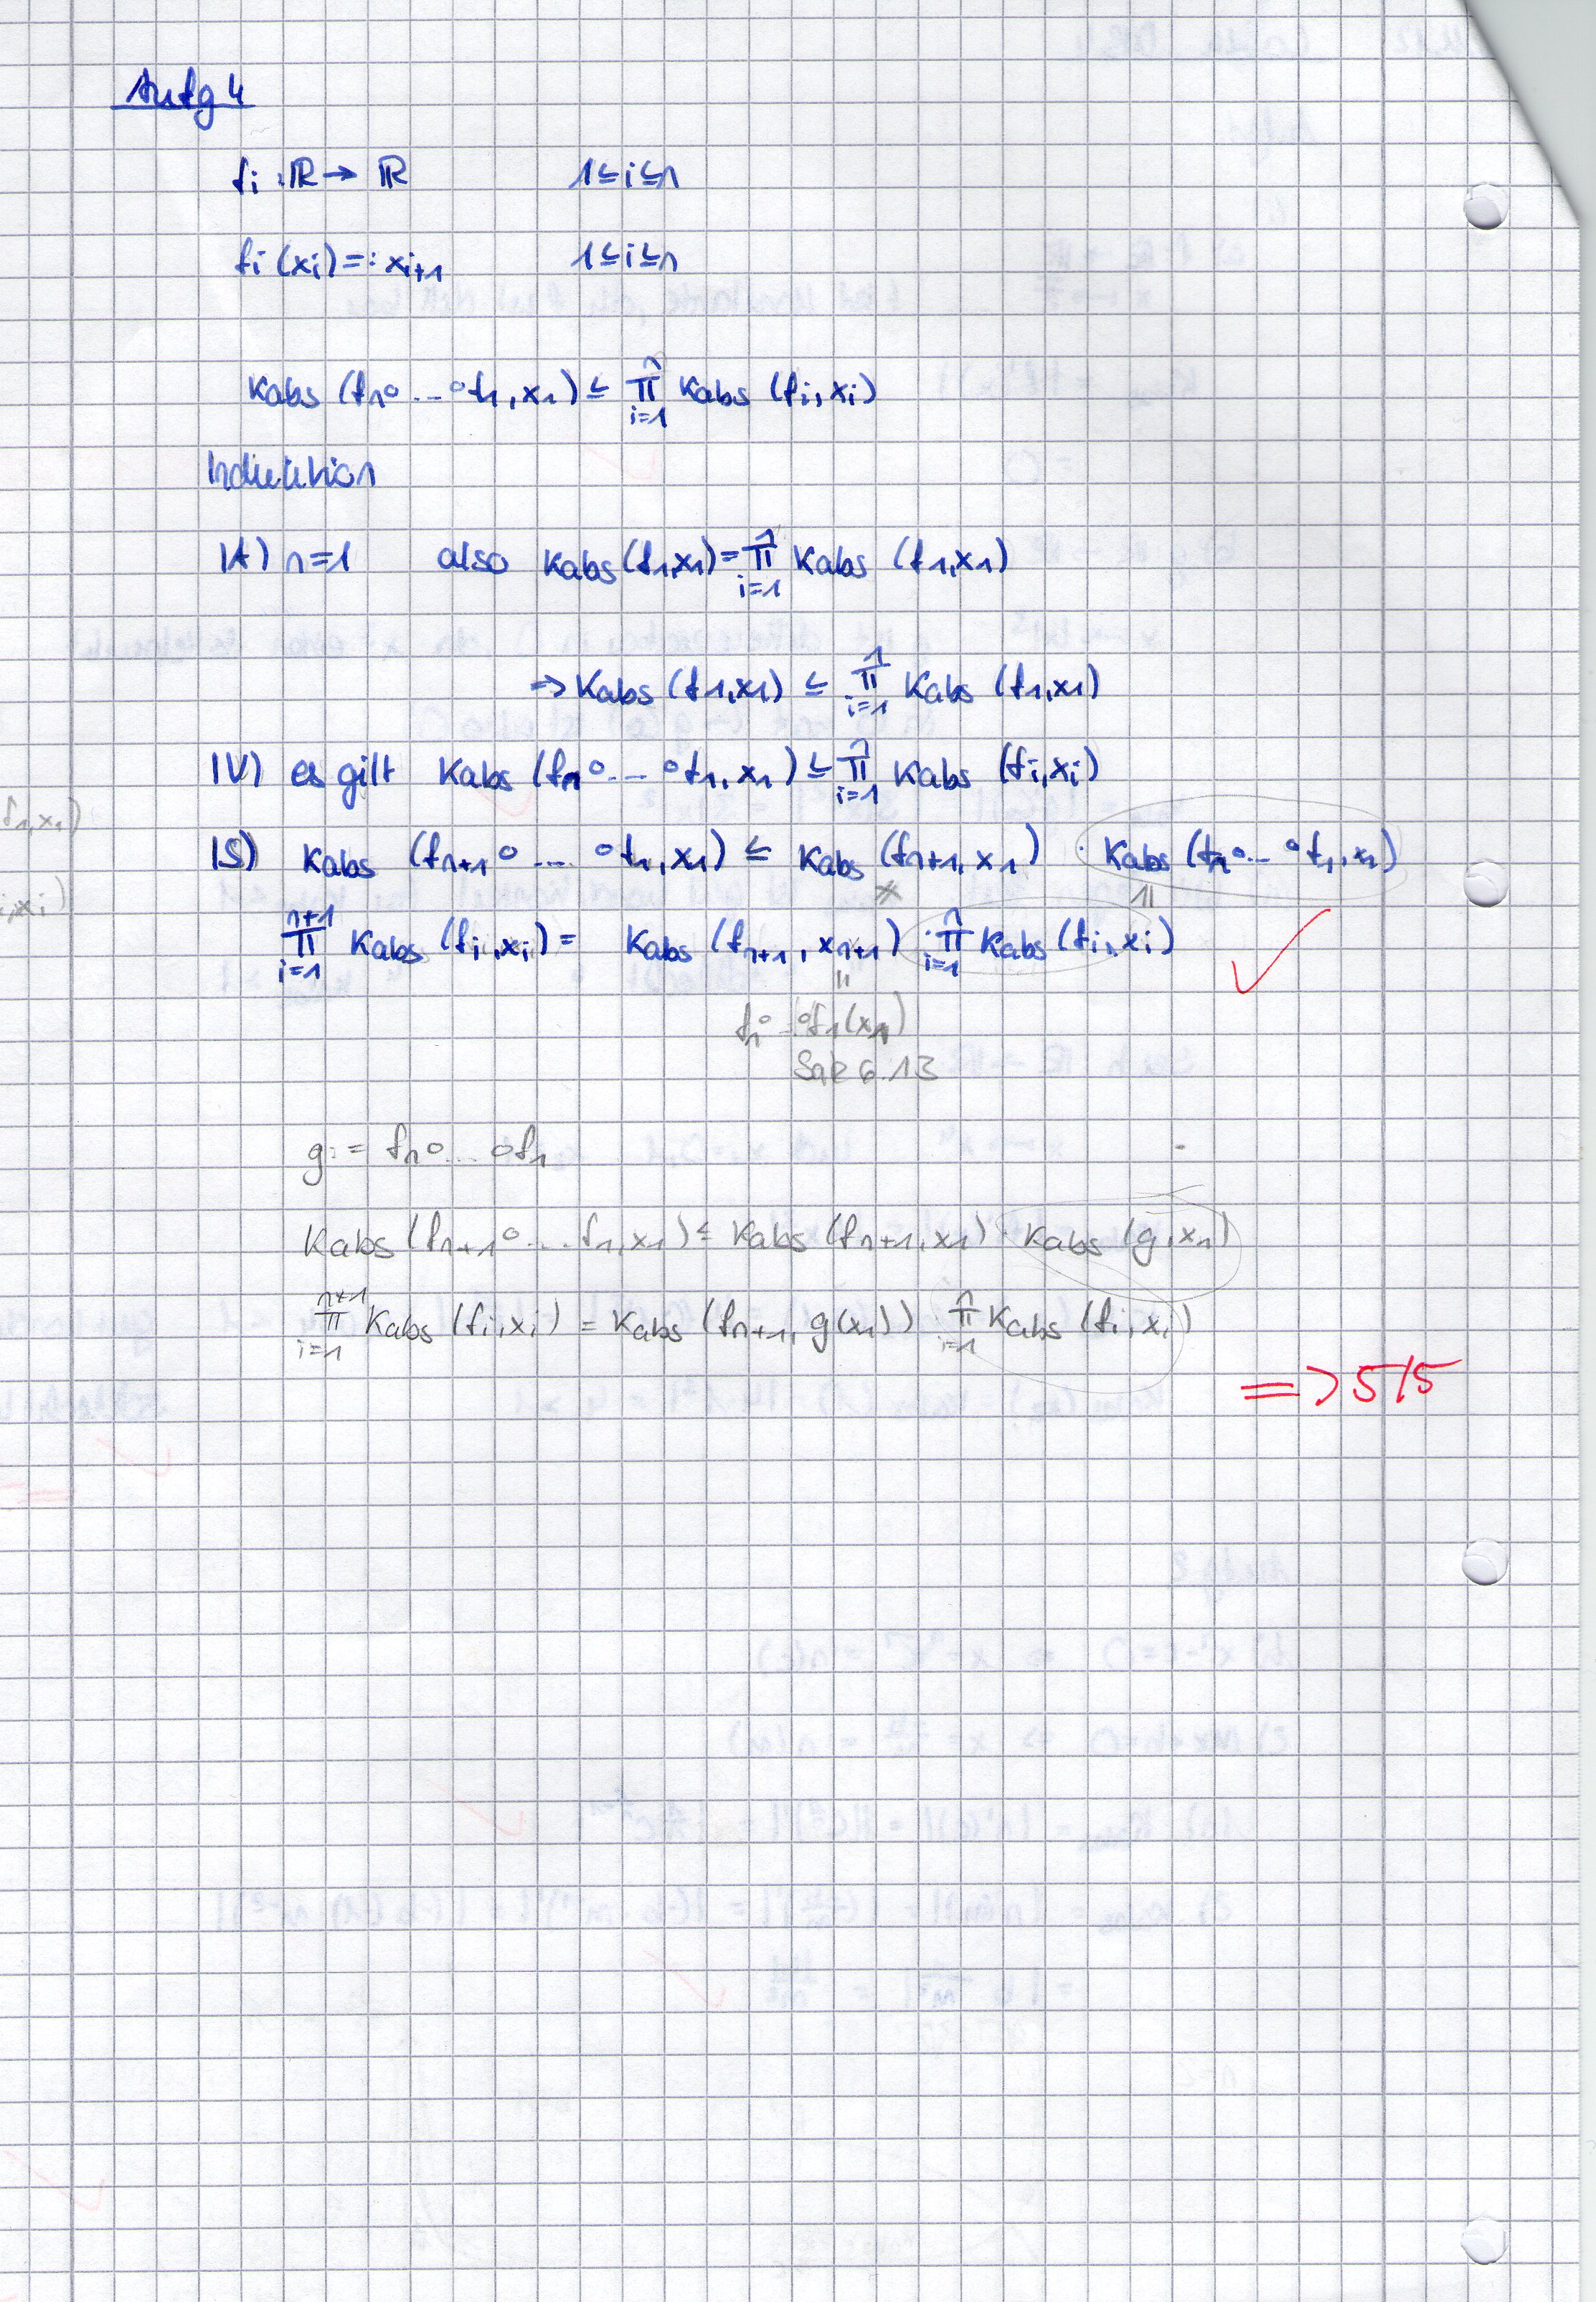 Aufg 4
fi : ℝ → ℝ 1≤i≤n
fi (xi) =: xi+1 1≤i≤n
Kabs (fn∘ ... ∘f1, x1) ≤ n∏i=1 Kabs (fi, xi)
Induktion
IA) n=1 also Kabs (f1,x1) = 1∏i=1 Kabs (f1,x1)
=> Kabs (f1,x1) ≤ 1∏i=1 Kabs (f1,x1)
IV) es gilt Kabs (fn∘ ... ∘f1, x1) ≤ n∏i=1 Kabs (fi,xi)
IS) Kabs (fn+1∘ ... ∘f1,x1) ≤ Kabs (fn+1, x1) · Kabs (fn∘ ... ∘f1, x1)
n+1∏i=1 Kabs (fi,xi) = Kabs (fn+1, xn+1) · n∏i=1 Kabs (fi, xi)
fn∘ ... ∘f1(x1)
Satz 6.13
g := fn∘ ... ∘f1
Kabs (fn+1∘ ... f1,x1) ≤ Kabs (fn+1,x1) · Kabs (g,x1)
n+1∏i=1 Kabs (fi,xi) = Kabs (fn+1, g(x1)) · n∏i=1 Kabs (fi, xi)
=> 5/5